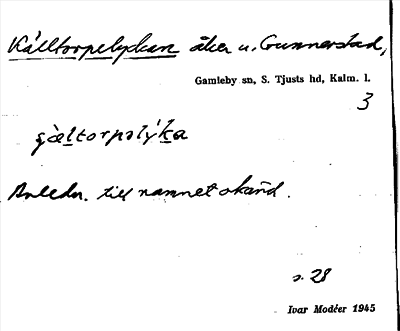 Källtorpelyckan åker u. Gunnerstad,
Gamleby sn, S. Tjusts hd, Kalm. l.
3
Anledn. till namnet okänd.
s. 28
Ivar Modéer 1945